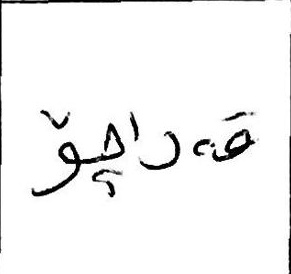 قەراچۆ